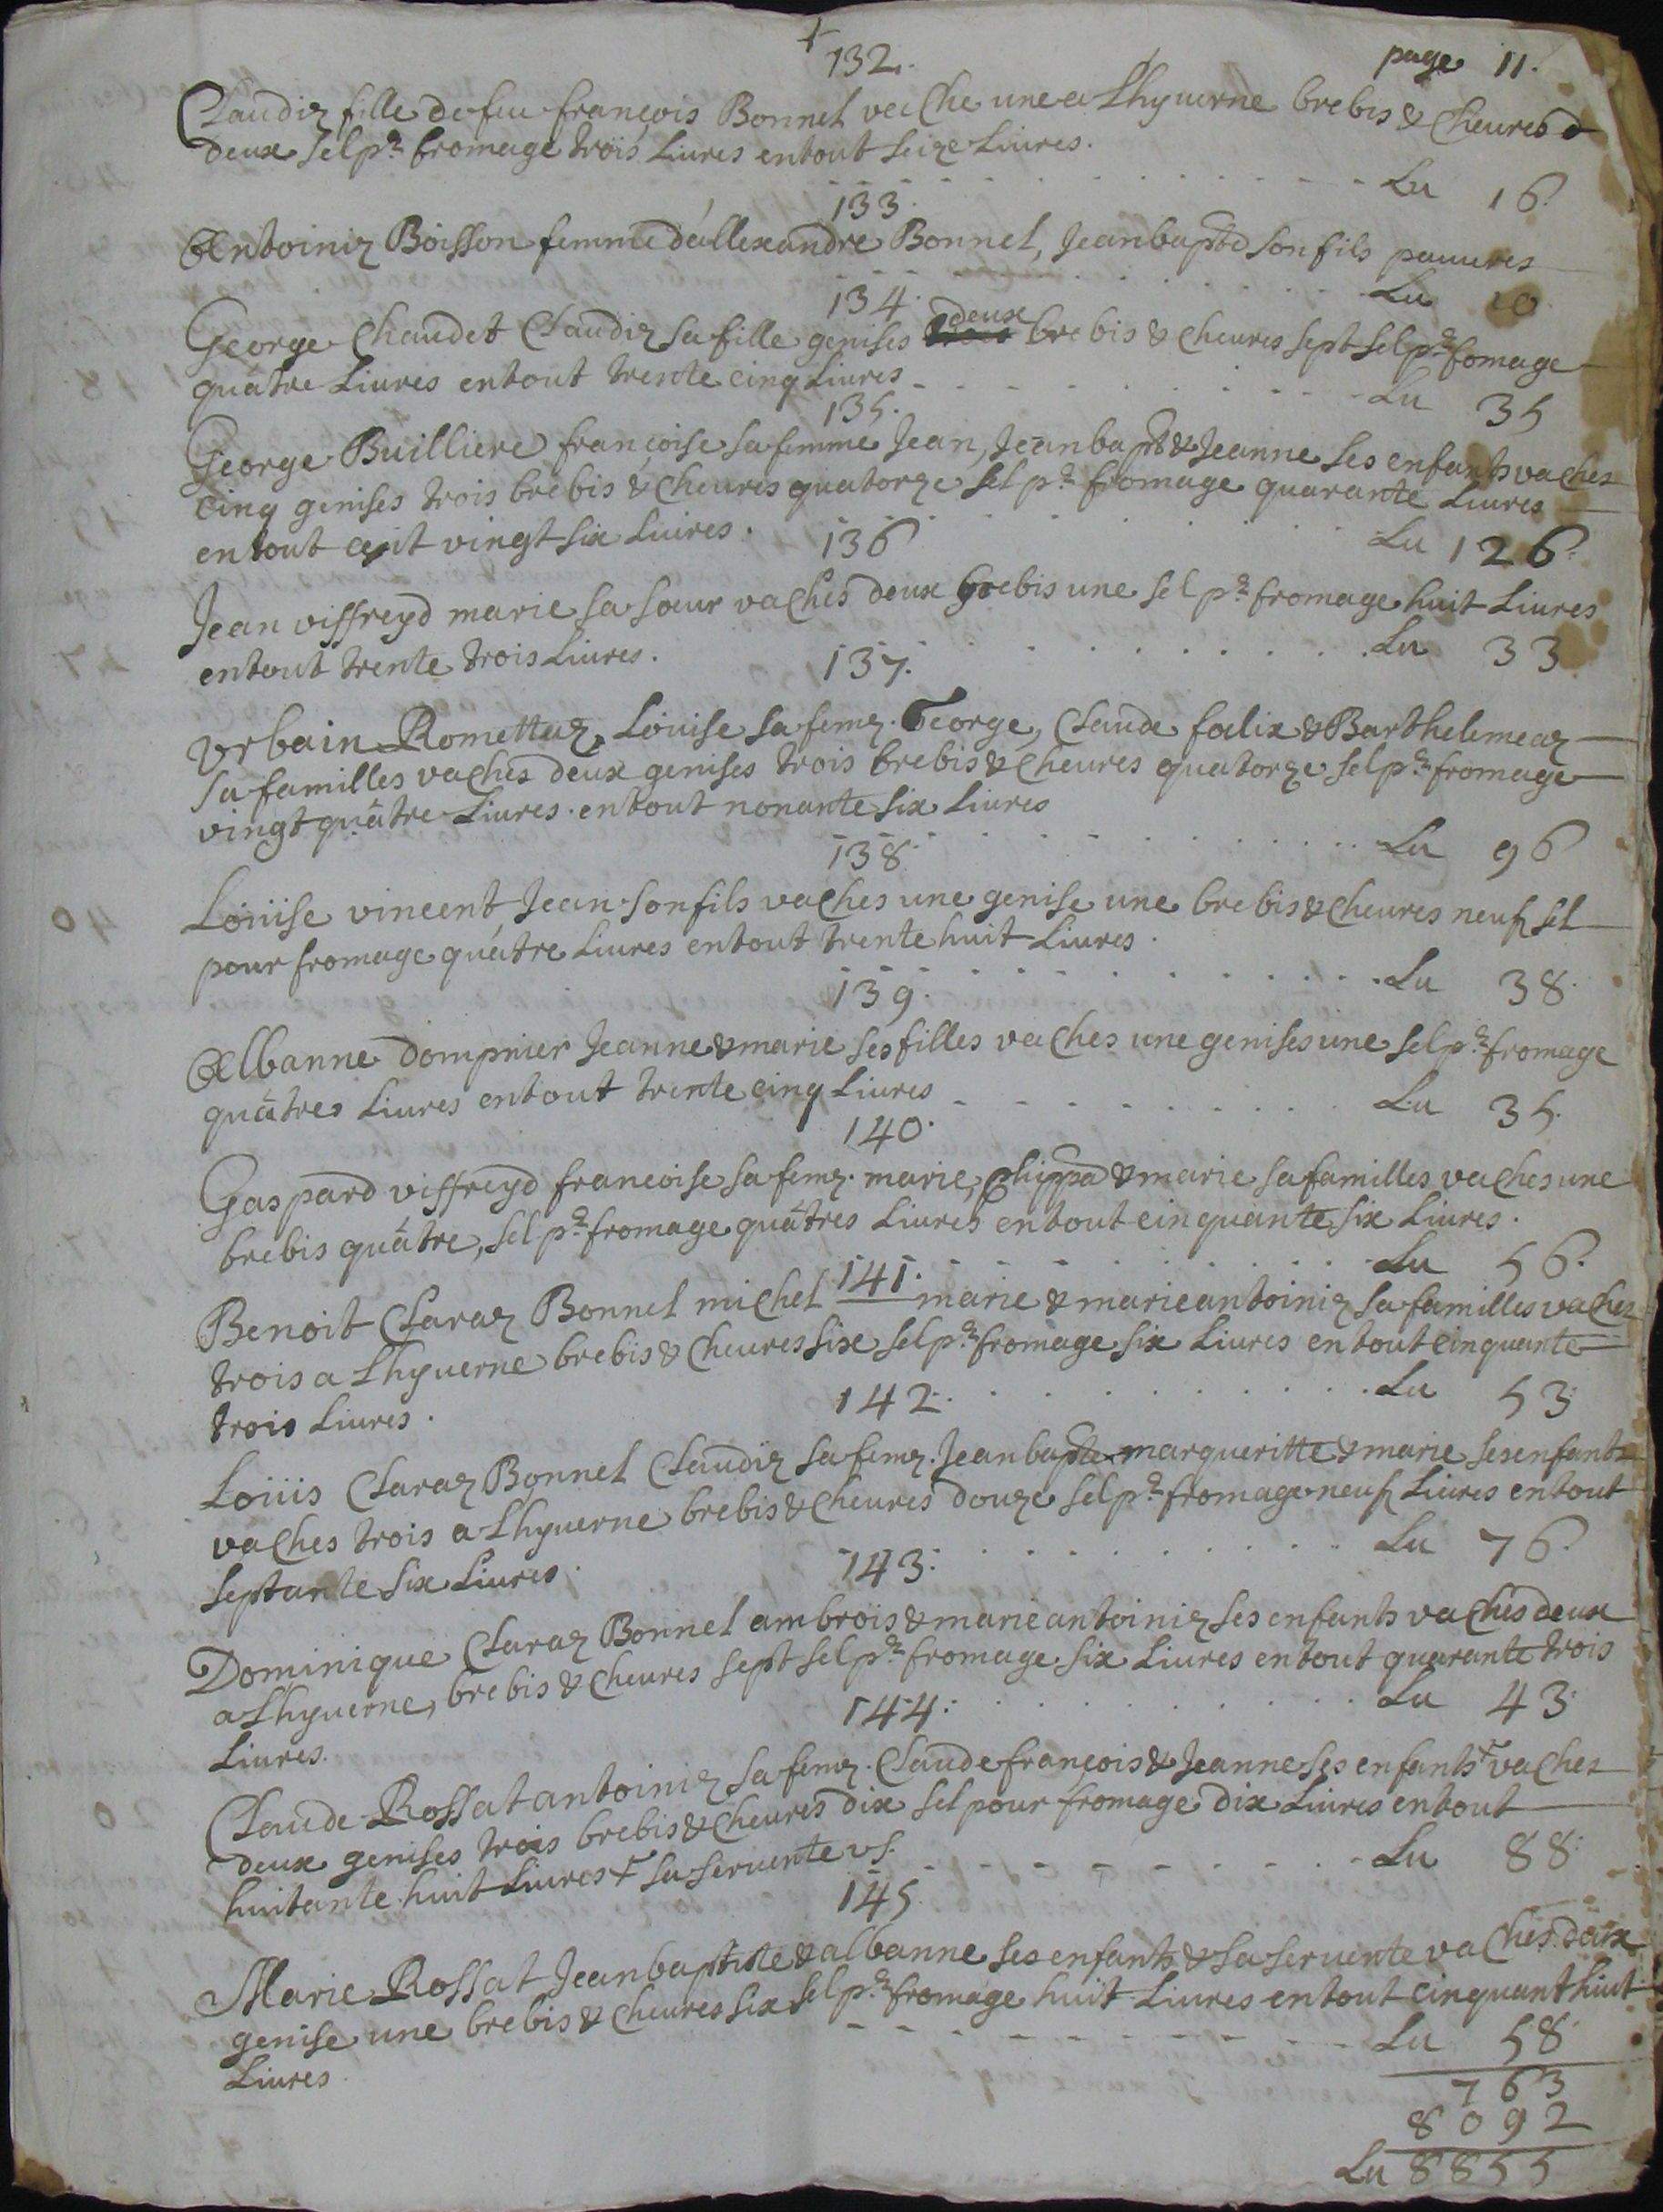 132. page 11.
Claudiz fille de feu françois Bonnel vache une a Lhyuerne brebis & cheures
deux sel pr fromage trois Liures entout seize Liures.
Lu 16.
133.
Antoiniz Boisson femme d'allexandre Bonnel, Jeanbapte son fils pauures
Lu 10
134.
George Chaudet Claudiz sa fille genises trois deux brebis & cheures sept sel pr fomage
quâtre Liures entout trente cinq Liures
Lu 35
135.
George Builliere françoise sa femme Jean, Jeanbapte & Jeanne ses enfants vaches
cinq genises trois brebis & cheures quatorze sel pr fromage quarante Liures
entout cent vingt six Liures.
Lu 126.
136
Jean viffreyd marie sa soeur vaches deux brebis une sel pr fromage huit Liures
entout trente trois Liures.
Lu 33
137.
Vrbain Romettaz Loüise sa femz. George, Claude foelix & Barthelemeaz
sa familles vaches deux genises trois brebis & cheures quatorze sel pr fromage
vingt quâtre Liures. entout nonante six Liures
Lu 96
138
Loüise vincent Jean son fils vaches une genise une brebis & cheures neuf sel
pour fromage quâtre Liures entout trente huit Liures.
Lu 38.
139.
Albanne dompnier Jeanne & marie ses filles vaches une genises une sel pr fromage
quâtres Liures entout trente cinq Liures
Lu 35.
140.
Gaspard viffreyd francoise sa femz. marie, phippa & marie sa familles vaches une
brebis quâtre, sel pr fromage quâtres Liures entout cinquante six Liures.
Lu 56.
141.
Benoit Claraz Bonnel michel marie & marie antoiniz sa familles vaches
trois a Lhyuerne brebis & cheures six sel pr fromage six Liures entout cinquante
trois Liures.
Lu 53
142.
Loüis Claraz Bonnel Claudiz sa femz. Jeanbapte margueritte & marie ses enfants
vaches trois a Lhyuerne brebis & cheures douze sel pr fromage neuf Liures entout
septante six Liures.
Lu 76.
143.
Dominique Claraz Bonnel ambrois & marie antoiniz ses enfants vaches deux
a Lhyuerne, brebis & cheures sept sel pr fromage six Liures entout quarante trois
Liures.
Lu 43
144.
Claude Rossat antoiniz sa femz. Claude françois & Jeanne ses enfants + vaches
deux genises trois brebis & cheures dix sel pour fromage dix Liures entout
huitante huit Liures + sa seruente vs.
Lu 88
145
Marie Rossat Jeanbaptiste & albanne ses enfants & sa seruente vaches deux
genise une brebis & cheures six sel pr fromage huit Liures entout cinquant huit
Liures
Lu 58
763
8092
Lu 8855